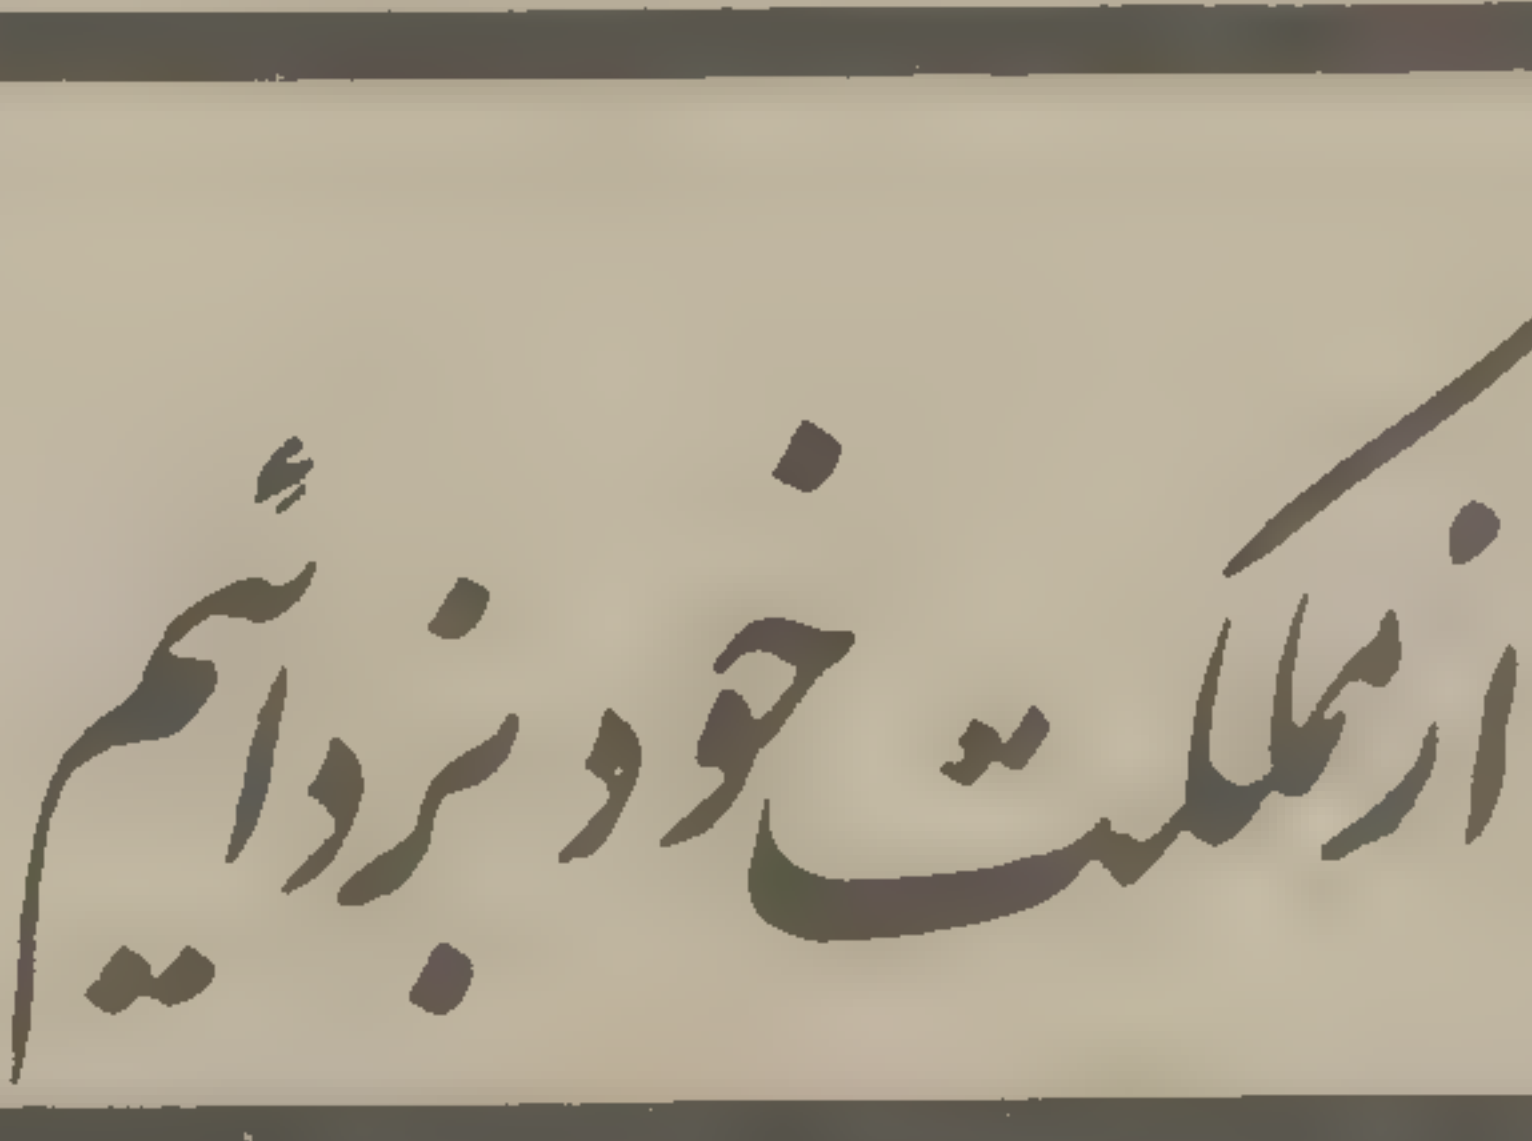 از مملکت خود بزدائیم